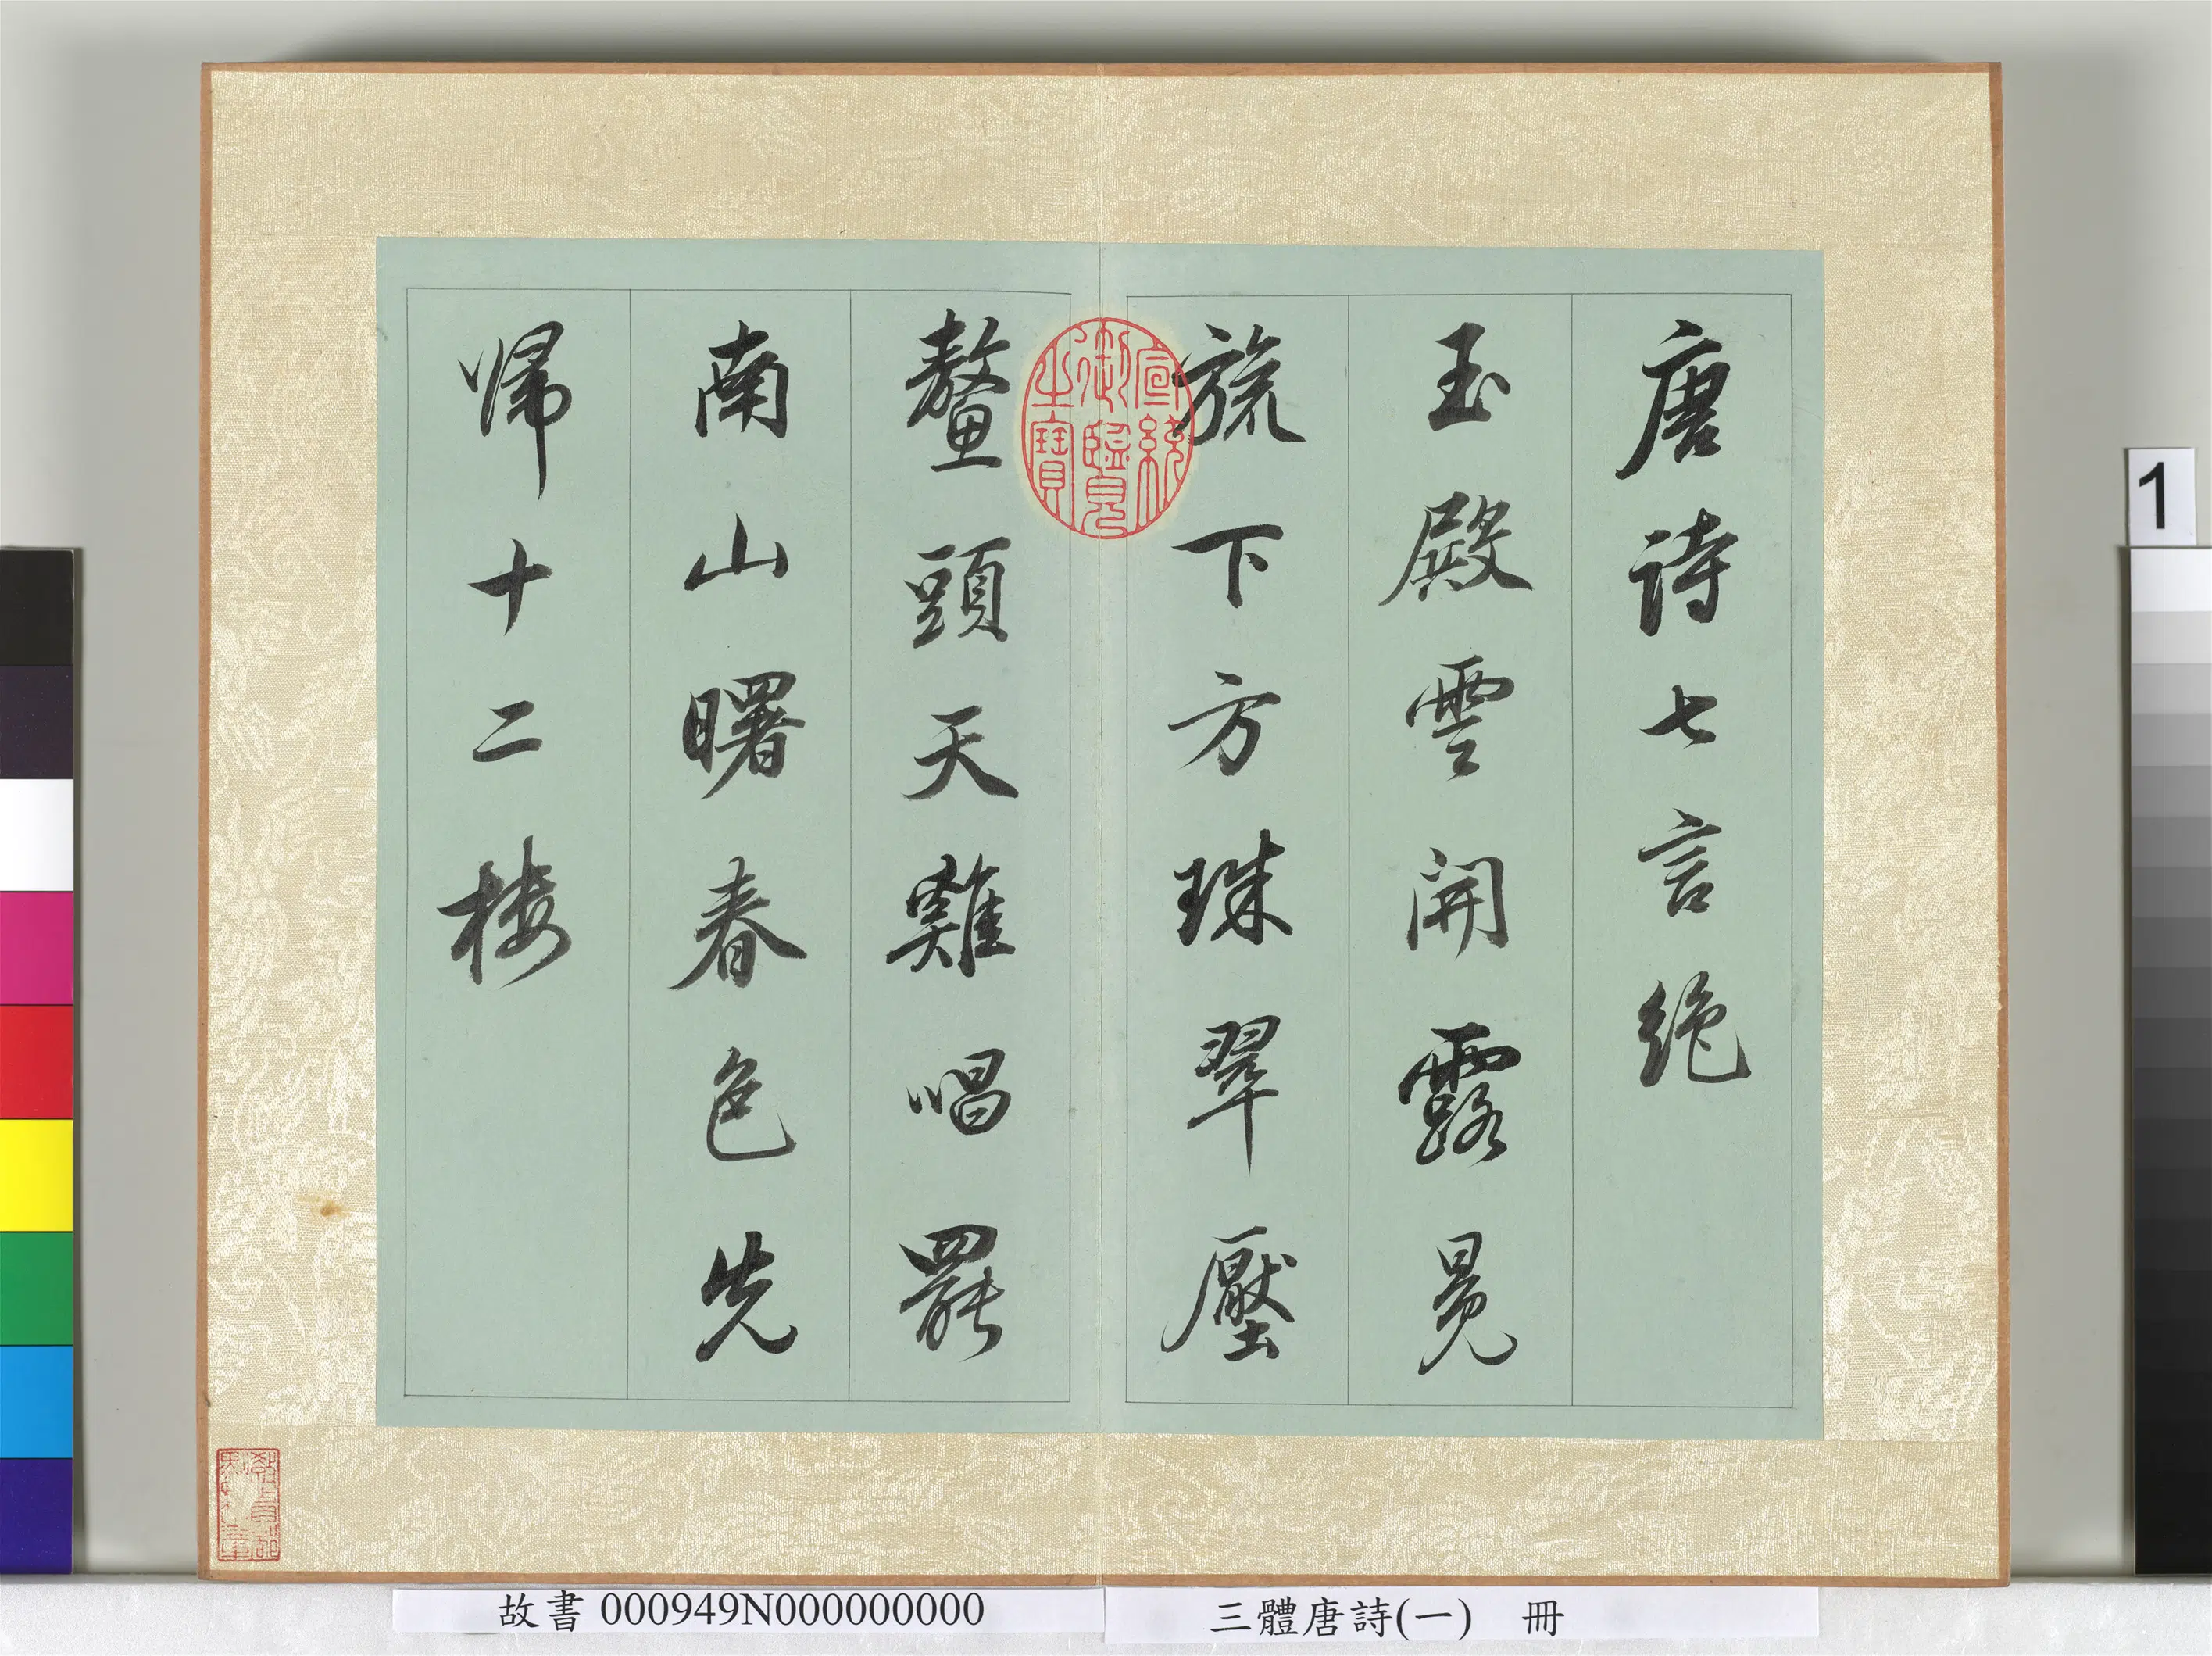 唐詩七言絶
玉殿雲開露冕
旒下方珠翠壓
鼇頭天雞唱罷
南山曙春色先
歸十二樓
宣統御覽之寶
1
故書 000949N000000000
三體唐詩(一) 冊